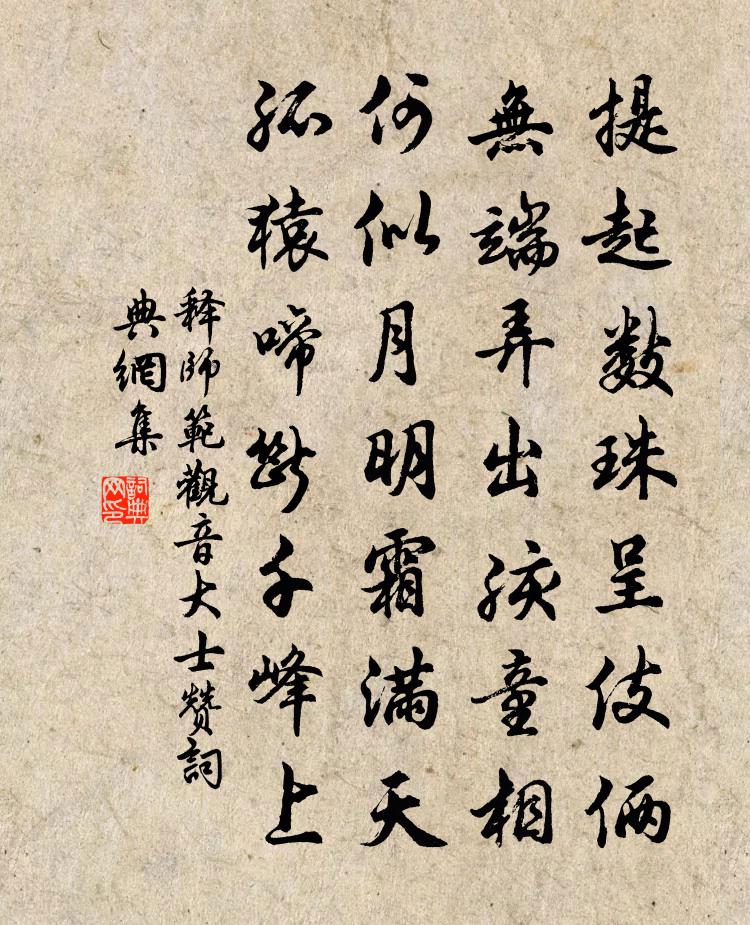 提起數珠呈伎倆
無端弄出孩童相
何似月明霜滿天
孤猿啼斷千峰上
释師範觀音大士赞詞
典網集
詞典
网印